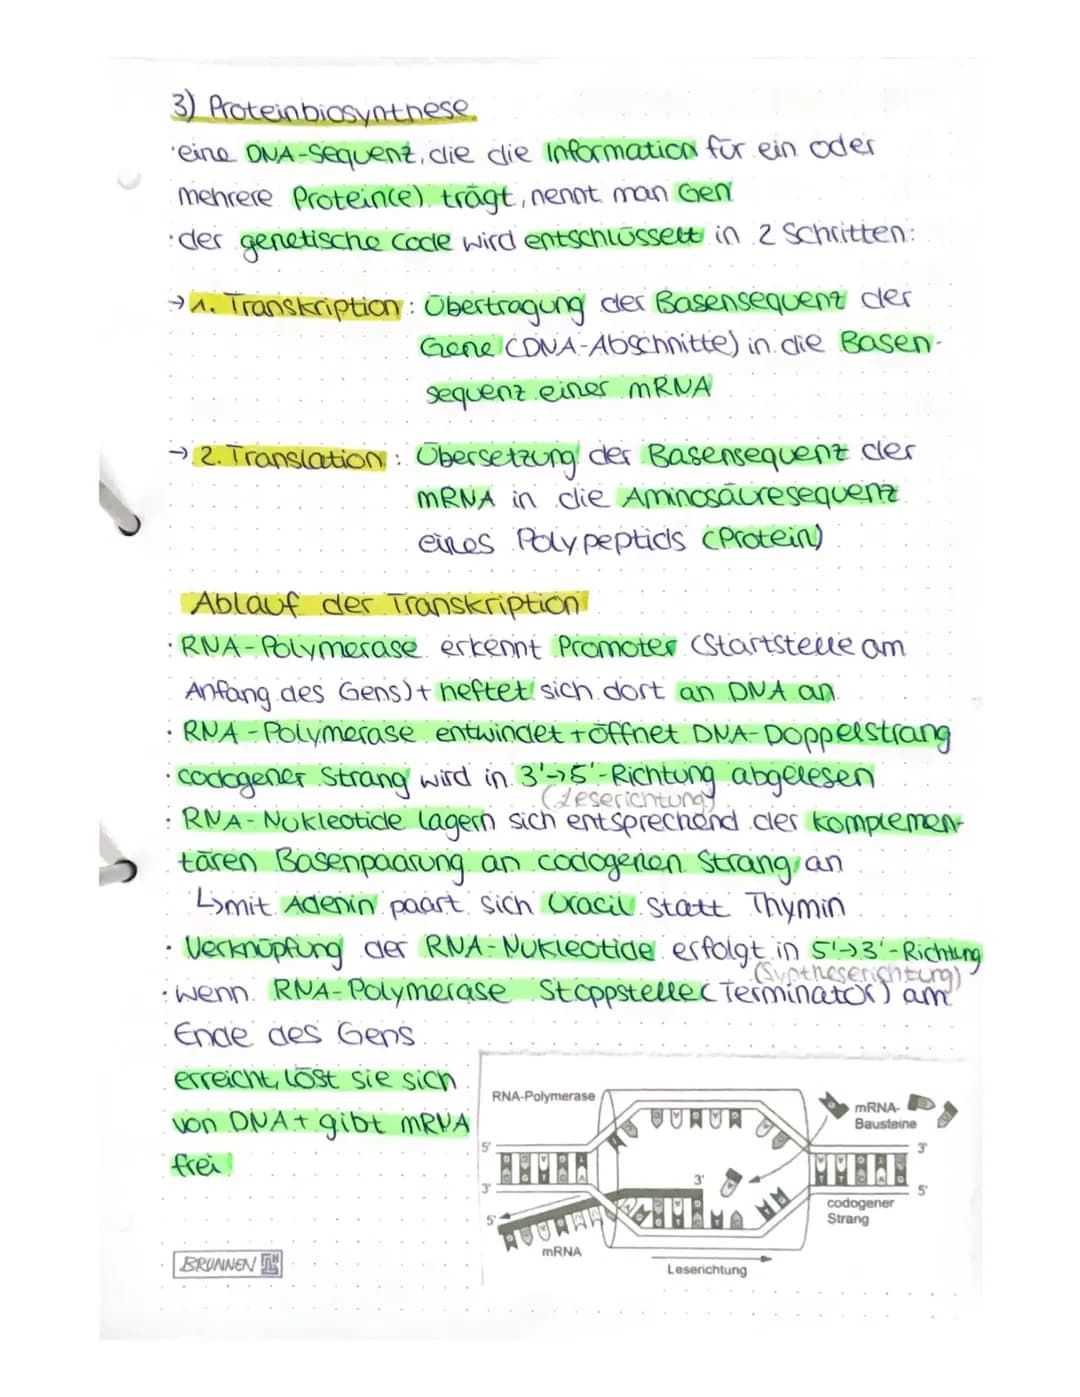 3) Proteinbiosynthese
·eine DNA-Sequenz, die die Information für ein oder
mehrere Protein(e) trägt, nennt man Gen
·der genetische Code wird entschlüsselt in 2 Schritten:
→ 1. Transkription: Übertragung der Basensequenz der
Gene (DNA-Abschnitte) in die Basen-
sequenz einer mRNA
→ 2. Translation: Übersetzung der Basensequenz der
mRNA in die Aminosäuresequenz
eines Polypeptids (Protein)
Ablauf der Transkription
· RNA-Polymerase erkennt Promoter (Startstelle am
Anfang des Gens) + heftet sich dort an DNA an
· RNA-Polymerase entwindet + öffnet DNA-Doppelstrang
· codogener Strang wird in 3'→5'-Richtung abgelesen
(Leserichtung)
· RNA-Nukleotide lagern sich entsprechend der komplemen-
tären Basenpaarung an codogenen Strang an
↳mit Adenin paart sich Uracil statt Thymin
· Verknüpfung der RNA-Nukleotide erfolgt in 5'→3'-Richtung
(Syntheserichtung)
· wenn RNA-Polymerase Stoppstelle (Terminator) am
Ende des Gens
erreicht, löst sie sich
von DNA + gibt mRNA
frei
RNA-Polymerase
mRNA-
Bausteine
5'
3'
3'
3'
5'
codogener
Strang
5'
mRNA
Leserichtung
BRUNNEN